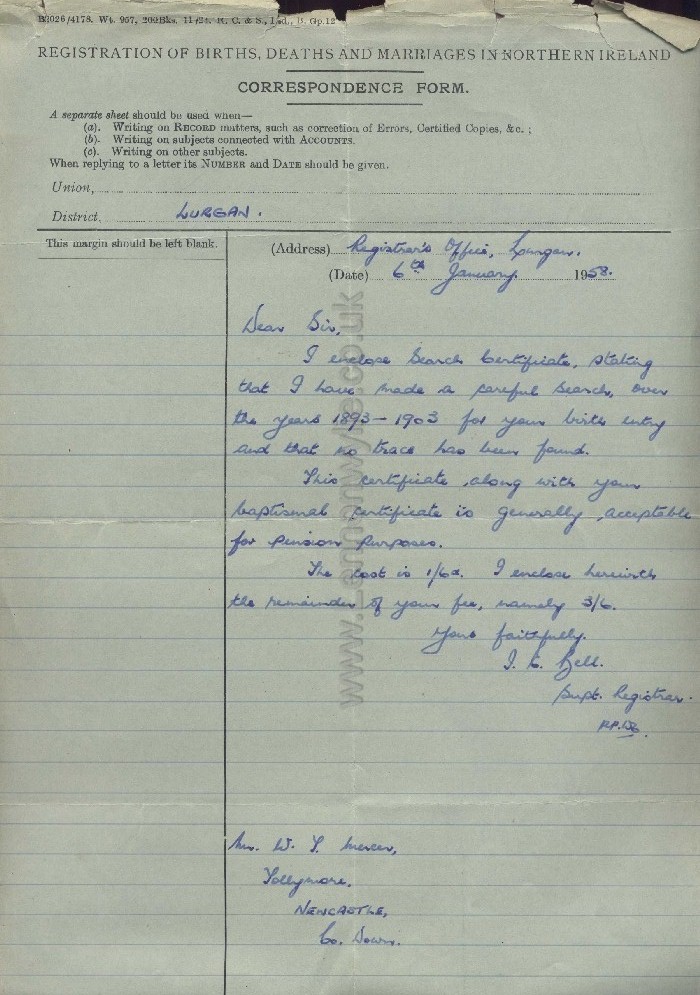 B3026/4178. Wt. 957, 200Bks. 11/24. R. C. & S., Ltd., B. Gp.12
REGISTRATION OF BIRTHS, DEATHS AND MARRIAGES IN NORTHERN IRELAND
CORRESPONDENCE FORM.
A separate sheet should be used when—
(a). Writing on RECORD matters, such as correction of Errors, Certified Copies, &c. ;
(b). Writing on subjects connected with ACCOUNTS.
(c). Writing on other subjects.
When replying to a letter its NUMBER and DATE should be given.
Union,
District, LURGAN.
This margin should be left blank.
(Address) Registrar's Office, Lurgan.
(Date) 6th January 1958.
Dear Sir,
I enclose Search Certificate, stating
that I have made a careful search, over
the years 1893-1903 for your birth entry
and that no trace has been found.
This certificate, along with your
baptismal certificate is generally acceptable
for pension purposes.
The cost is 1/6d. I enclose herewith
the remainder of your fee, namely 3/6.
Yours faithfully.
Bell.
Supt. Registrar.
Mr. W. J. Mercer,
Tollymore,
NEWCASTLE,
Co. Down.
www.Lennonwylie.co.uk